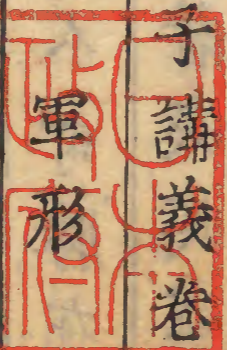 子講義卷
軍形